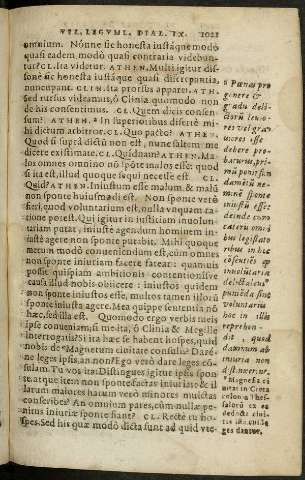 VEL LEGVML. DIAL. IX. 1021
omnium. Nónne sic honesta iustáque modò
quasi eadem modò quasi contraria videbun-
tur? CL. Ita videtur. ATHEN. Multi igitur dis-
sonè sic honesta iustáque quasi discrepantia
nuncupant. CLIN. Ita prorsus apparet. ATH.
Sed rursus videamus, ô Clinia quomodo non
de his consentimus. CL. Quem dicis consen-
sum? ATHEN. In superioribus disertè mi-
hi dictum arbitror. CL. Quo pacto? ATHEN.
Quod si suprà dictũ non est, nunc saltem me
dicere existimate. CL. Quidnam? ATHEN. Ma-
los omnes omnino nõ spõte malos esse: quod
si ita est, illud quoque sequi necesse est. CL.
Quid? ATHEN. Iniustum esse malum: & malũ
non sponte huiusmodi est. Non sponte verò
fieri, quod voluntarium est, nulla vnquam ra-
tione potest. Qui igitur iti iusticiam inuolun-
tariam putat, iniustè agendum hominem in-
iustè agere non sponte putabit. Mihi quoque
nunc modò conueniendum est, cùm omnes
non sponte iniuriam facere fatear: quamuis
possit quispiam ambitionis contentionísve
causa illud nobis obiicere: iniustos quidem
non sponte iniustos esse, multos tamen illorũ
sponte iniustè agere. Mea quippe sententia nõ
hæc, sed illa est. Quomodo ergo verbis meis
ipse conueniam, si me ita, ô Clinia & Megille
interrogatis? Si ita hæc se habent hospes, quid
nobis de Magnetum ciuitate consulis? Darè-
ne leges ipsis, an non? Ego verò dare leges cõ-
sulam. Tu vos ita: Distingues igitur ipsis spon
te, atque item non sponte factas iniurias: & il-
larum maiores harum verò minores mulctas
conscribes? An omnium pares, cùm nullæ pe-
nitus iniuriæ sponte fiant? CL. Rectè tu ho-
spes. Sed his quæ modò dicta sunt ad quid vte-
Punas pro
genere &
gradu delic-
torũ leuio-
res vel gran
uiores esse
debere pro-
baturus, pri-
mũ ponit fun
damẽtũ ne-
minẽ sponte
iniustũ esse:
deinde cum
cæteru omni
bus legislato
ribus in hoc
cõsentit ex
inuoluntaria
delicta esse
punẽda sint
voluntaria
hoc in illis
reprehen-
dit, quod
damnum ab
iniuria non
distinxerint.
Magnesia ci
uitas in Creta
colonia à Thes-
salorũ ex ea
deducta ciuita-
tis ista cui le-
ges dantur.